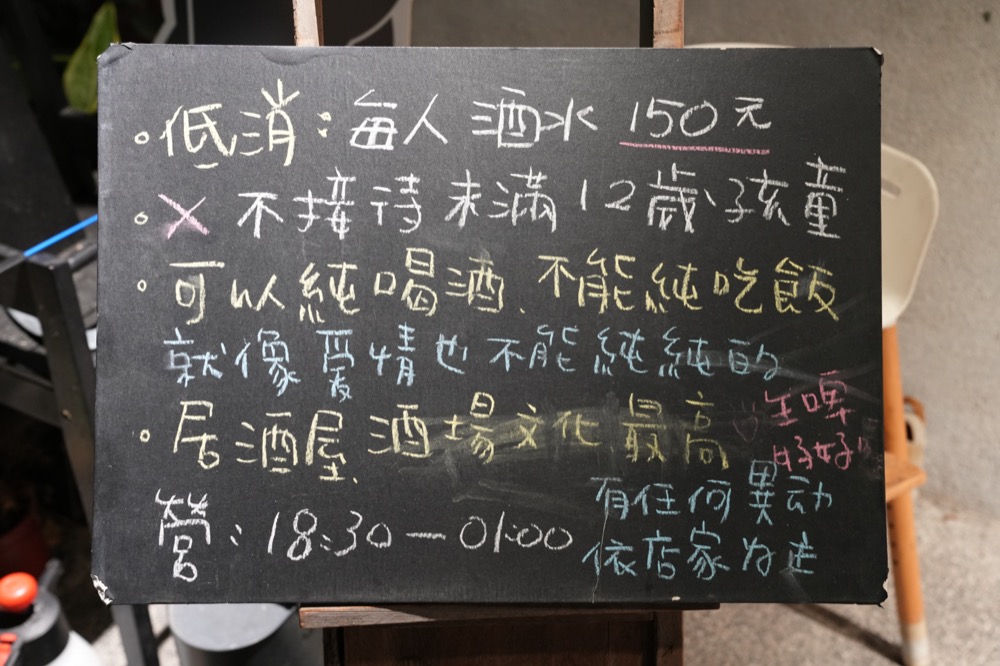 低消：每人 酒水 150元
X 不接待未滿12歲孩童
可以純喝酒、不能純吃飯
就像愛情也不能純純的
居酒屋、酒場文化最高
生啤
好好
營：18:30－01:00
有任何異动
依店家为主